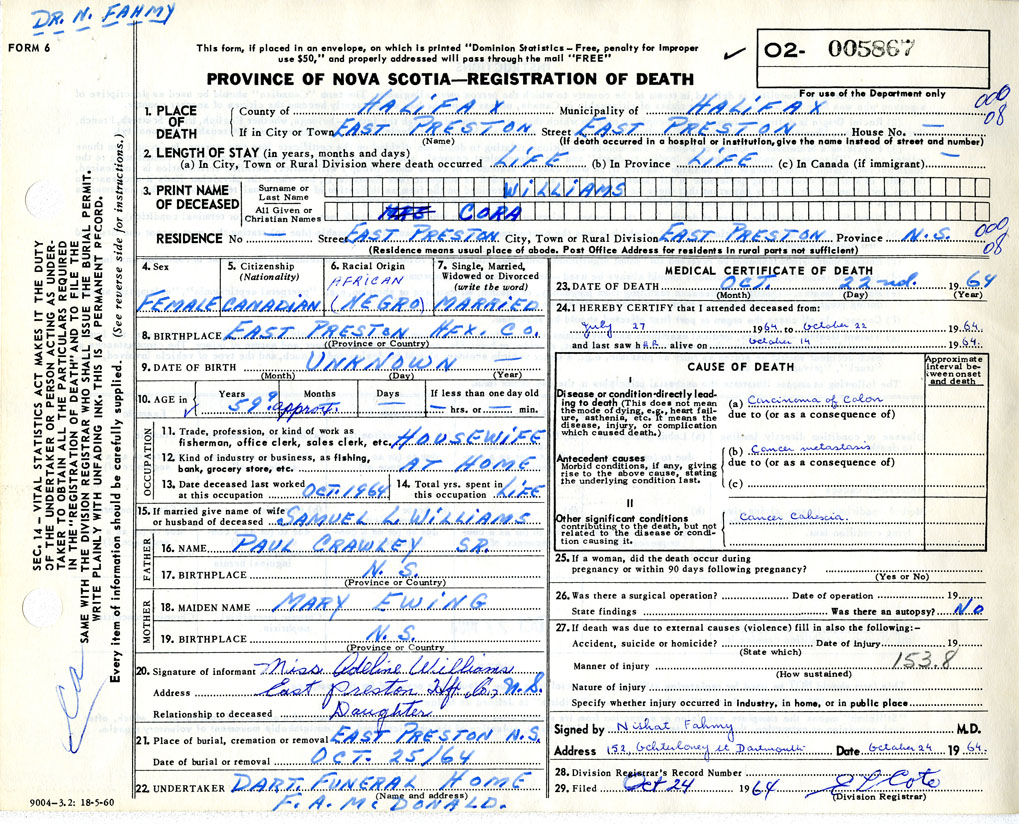 DR. N. FAHMY
FORM 6
This form, if placed in an envelope, on which is printed "Dominion Statistics – Free, penalty for improper
use $50," and properly addressed will pass through the mail "FREE"
O2- 005867
For use of the Department only
PROVINCE OF NOVA SCOTIA—REGISTRATION OF DEATH
SEC. 14 – VITAL STATISTICS ACT MAKES IT THE DUTY
OF THE UNDERTAKER OR PERSON ACTING AS UNDER-
TAKER TO OBTAIN ALL THE PARTICULARS REQUIRED
IN THE "REGISTRATION OF DEATH" AND TO FILE THE
SAME WITH THE DIVISION REGISTRAR WHO SHALL ISSUE THE BURIAL PERMIT.
WRITE PLAINLY WITH UNFADING INK. THIS IS A PERMANENT RECORD.
Every item of information should be carefully supplied. (See reverse side for instructions.)
1. PLACE OF DEATH
County of HALIFAX Municipality of HALIFAX 000 08
If in City or Town EAST PRESTON Street EAST PRESTON House No. —
(Name) (If death occurred in a hospital or institution, give the name instead of street and number)
2. LENGTH OF STAY (in years, months and days)
(a) In City, Town or Rural Division where death occurred LIFE (b) In Province LIFE (c) In Canada (if immigrant) —
3. PRINT NAME OF DECEASED
Surname or Last Name WILLIAMS
All Given or Christian Names MRS CORA
RESIDENCE No — Street EAST PRESTON City, Town or Rural Division EAST PRESTON Province N.S. 000 08
(Residence means usual place of abode. Post Office Address for residents in rural parts not sufficient)
4. Sex FEMALE
5. Citizenship (Nationality) CANADIAN
6. Racial Origin AFRICAN (NEGRO)
7. Single, Married, Widowed or Divorced (write the word) MARRIED
8. BIRTHPLACE EAST PRESTON HFX. CO.
(Province or Country)
9. DATE OF BIRTH UNKNOWN —
(Month) (Day) (Year)
10. AGE in Years 59? approx. Months Days — If less than one day old — hrs. or — min.
OCCUPATION
11. Trade, profession or kind of work as
fisherman, office clerk, sales clerk, etc. HOUSEWIFE
12. Kind of industry or business, as fishing,
bank, grocery store, etc. AT HOME
13. Date deceased last worked at this occupation OCT. 1964
14. Total yrs. spent in this occupation LIFE
15. If married give name of wife
or husband of deceased SAMUEL L. WILLIAMS
FATHER
16. NAME PAUL CRAWLEY SR.
17. BIRTHPLACE N.S.
(Province or Country)
MOTHER
18. MAIDEN NAME MARY EWING
19. BIRTHPLACE N.S.
(Province or Country
20. Signature of informant Miss Adeline Williams
Address East Preston Hfx. Co., N.S.
Relationship to deceased Daughter
21. Place of burial, cremation or removal EAST PRESTON N.S.
Date of burial or removal OCT. 25/64
22. UNDERTAKER DART. FUNERAL HOME
(Name and address)
F. A. McDONALD.
9004–3.2: 18-5-60
MEDICAL CERTIFICATE OF DEATH
23. DATE OF DEATH OCT. 22nd. 1964
(Month) (Day) (Year)
24. I HEREBY CERTIFY that I attended deceased from:
July 27 1964 to October 22 1964.
and last saw her alive on October 14 1964.
CAUSE OF DEATH
Approximate interval between onset and death
I
Disease or condition directly leading
to death (This does not mean
the mode of dying, e.g., heart failure,
asthenia, etc. It means the
disease, injury, or complication
which caused death.)
(a) Carcinoma of Colon
due to (or as a consequence of)
Antecedent causes
Morbid conditions, if any, giving
rise to the above cause, stating
the underlying condition last.
(b) Cancer metastasis
due to (or as a consequence of)
(c)
II
Other significant conditions
contributing to the death, but not
related to the disease or condition
causing it.
Cancer Cahescia.
25. If a woman, did the death occur during
pregnancy or within 90 days following pregnancy?
(Yes or No)
26. Was there a surgical operation? Date of operation 19
State findings Was there an autopsy? No
27. If death was due to external causes (violence) fill in also the following:–
Accident, suicide or homicide? Date of injury 19
(State which)
Manner of injury 153.8
(How sustained)
Nature of injury
Specify whether injury occurred in industry, in home, or in public place
Signed by Nishat Fahmy M.D.
Address 152, Ochterloney st Dartmouth Date October 24 1964.
28. Division Registrar's Record Number
29. Filed Oct 24 1964
(Division Registrar)